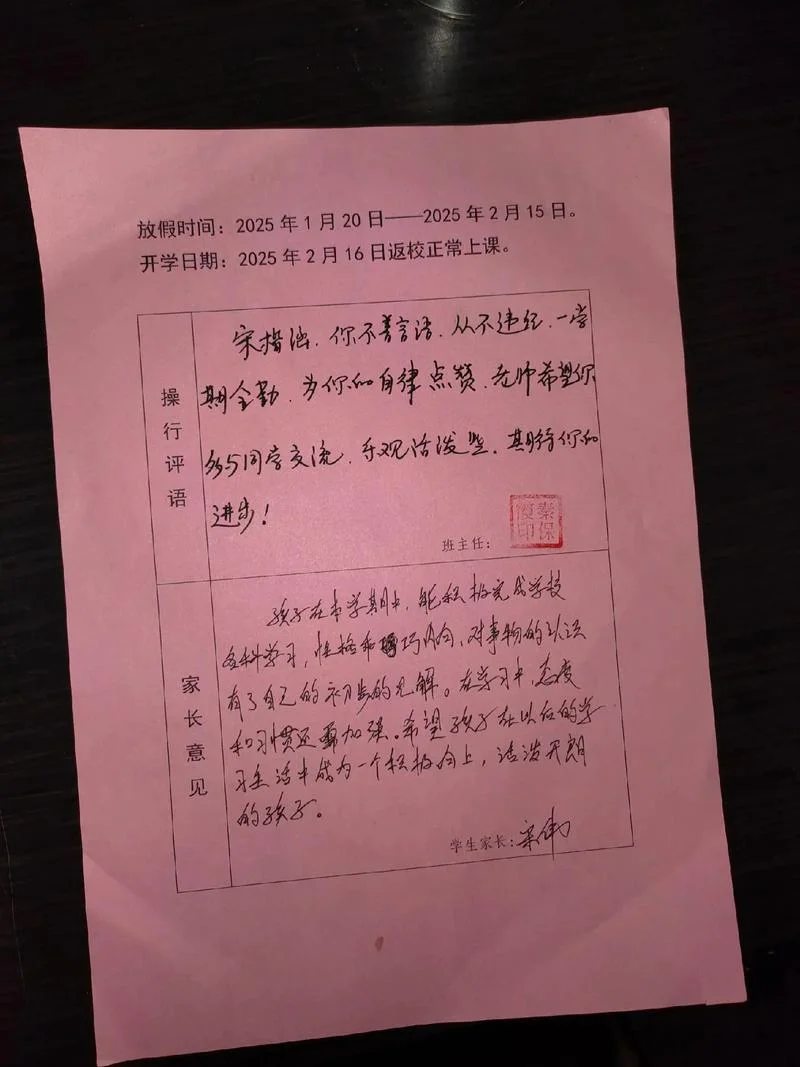 放假时间：2025 年 1 月 20 日——2025 年 2 月 15 日。
开学日期：2025 年 2 月 16 日返校正常上课。
操行评语
宋 涵．你不善言语．从不违纪．一学
期全勤．为你的自律点赞．老师希望你
多与同学交流．乐观活泼些．期待你的
进步！
班主任：
俊秦
印保
家长意见
孩子在本学期中，能积极完成学校
各科学习，性格 内向，对事物的认识
有了自己的初步的见解。在学习中，态度
和习惯还要加强。希望孩子在以后的学
习生活中成为一个积极向上，活泼开朗
的孩子。
学生家长：宋伟